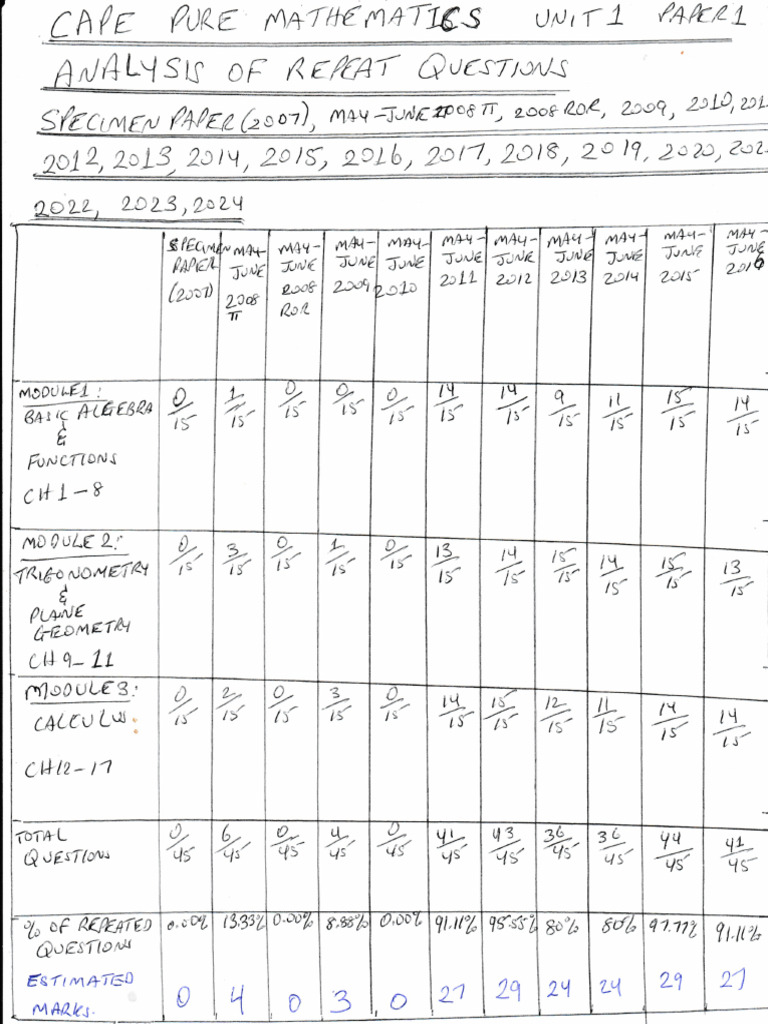 CAPE PURE MATHEMATICS UNIT 1 PAPER 1
ANALYSIS OF REPEAT QUESTIONS
SPECIMEN PAPER (2007), MAY-JUNE 2008 TT, 2008 ROR, 2009, 2010, 201
2012, 2013, 2014, 2015, 2016, 2017, 2018, 2019, 2020, 202
2022, 2023, 2024
SPECIMEN PAPER (2007) MAY-JUNE 2008 TT MAY-JUNE 2008 ROR MAY-JUNE 2009 MAY-JUNE 2010 MAY-JUNE 2011 MAY-JUNE 2012 MAY-JUNE 2013 MAY-JUNE 2014 MAY-JUNE 2015 MAY-JUNE 2016
MODULE 1: 0/15 1/15 0/15 0/15 0/15 14/15 14/15 9/15 11/15 15/15 14/15
BASIC ALGEBRA
&
FUNCTIONS
CH 1-8
MODULE 2: 0/15 3/15 0/15 1/15 0/15 13/15 14/15 15/15 14/15 15/15 13/15
TRIGONOMETRY
&
PLANE
GEOMETRY
CH 9-11
MODULE 3: 0/15 2/15 0/15 3/15 0/15 14/15 15/15 12/15 11/15 14/15 14/15
CALCULUS:
CH12-17
TOTAL QUESTIONS 0/45 6/45 0/45 4/45 0/45 41/45 43/45 36/45 36/45 44/45 41/45
% OF REPEATED QUESTIONS 0.00% 13.33% 0.00% 8.88% 0.00% 91.11% 95.55% 80% 80% 97.77% 91.11%
ESTIMATED MARKS. 0 4 0 3 0 27 29 24 24 29 27